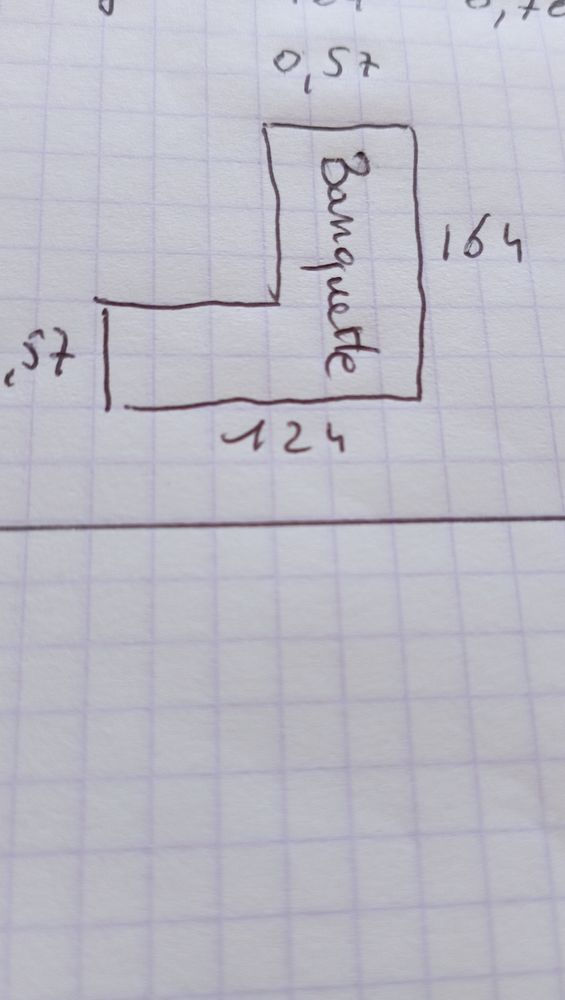 0,57
Banquette
164
,57
124